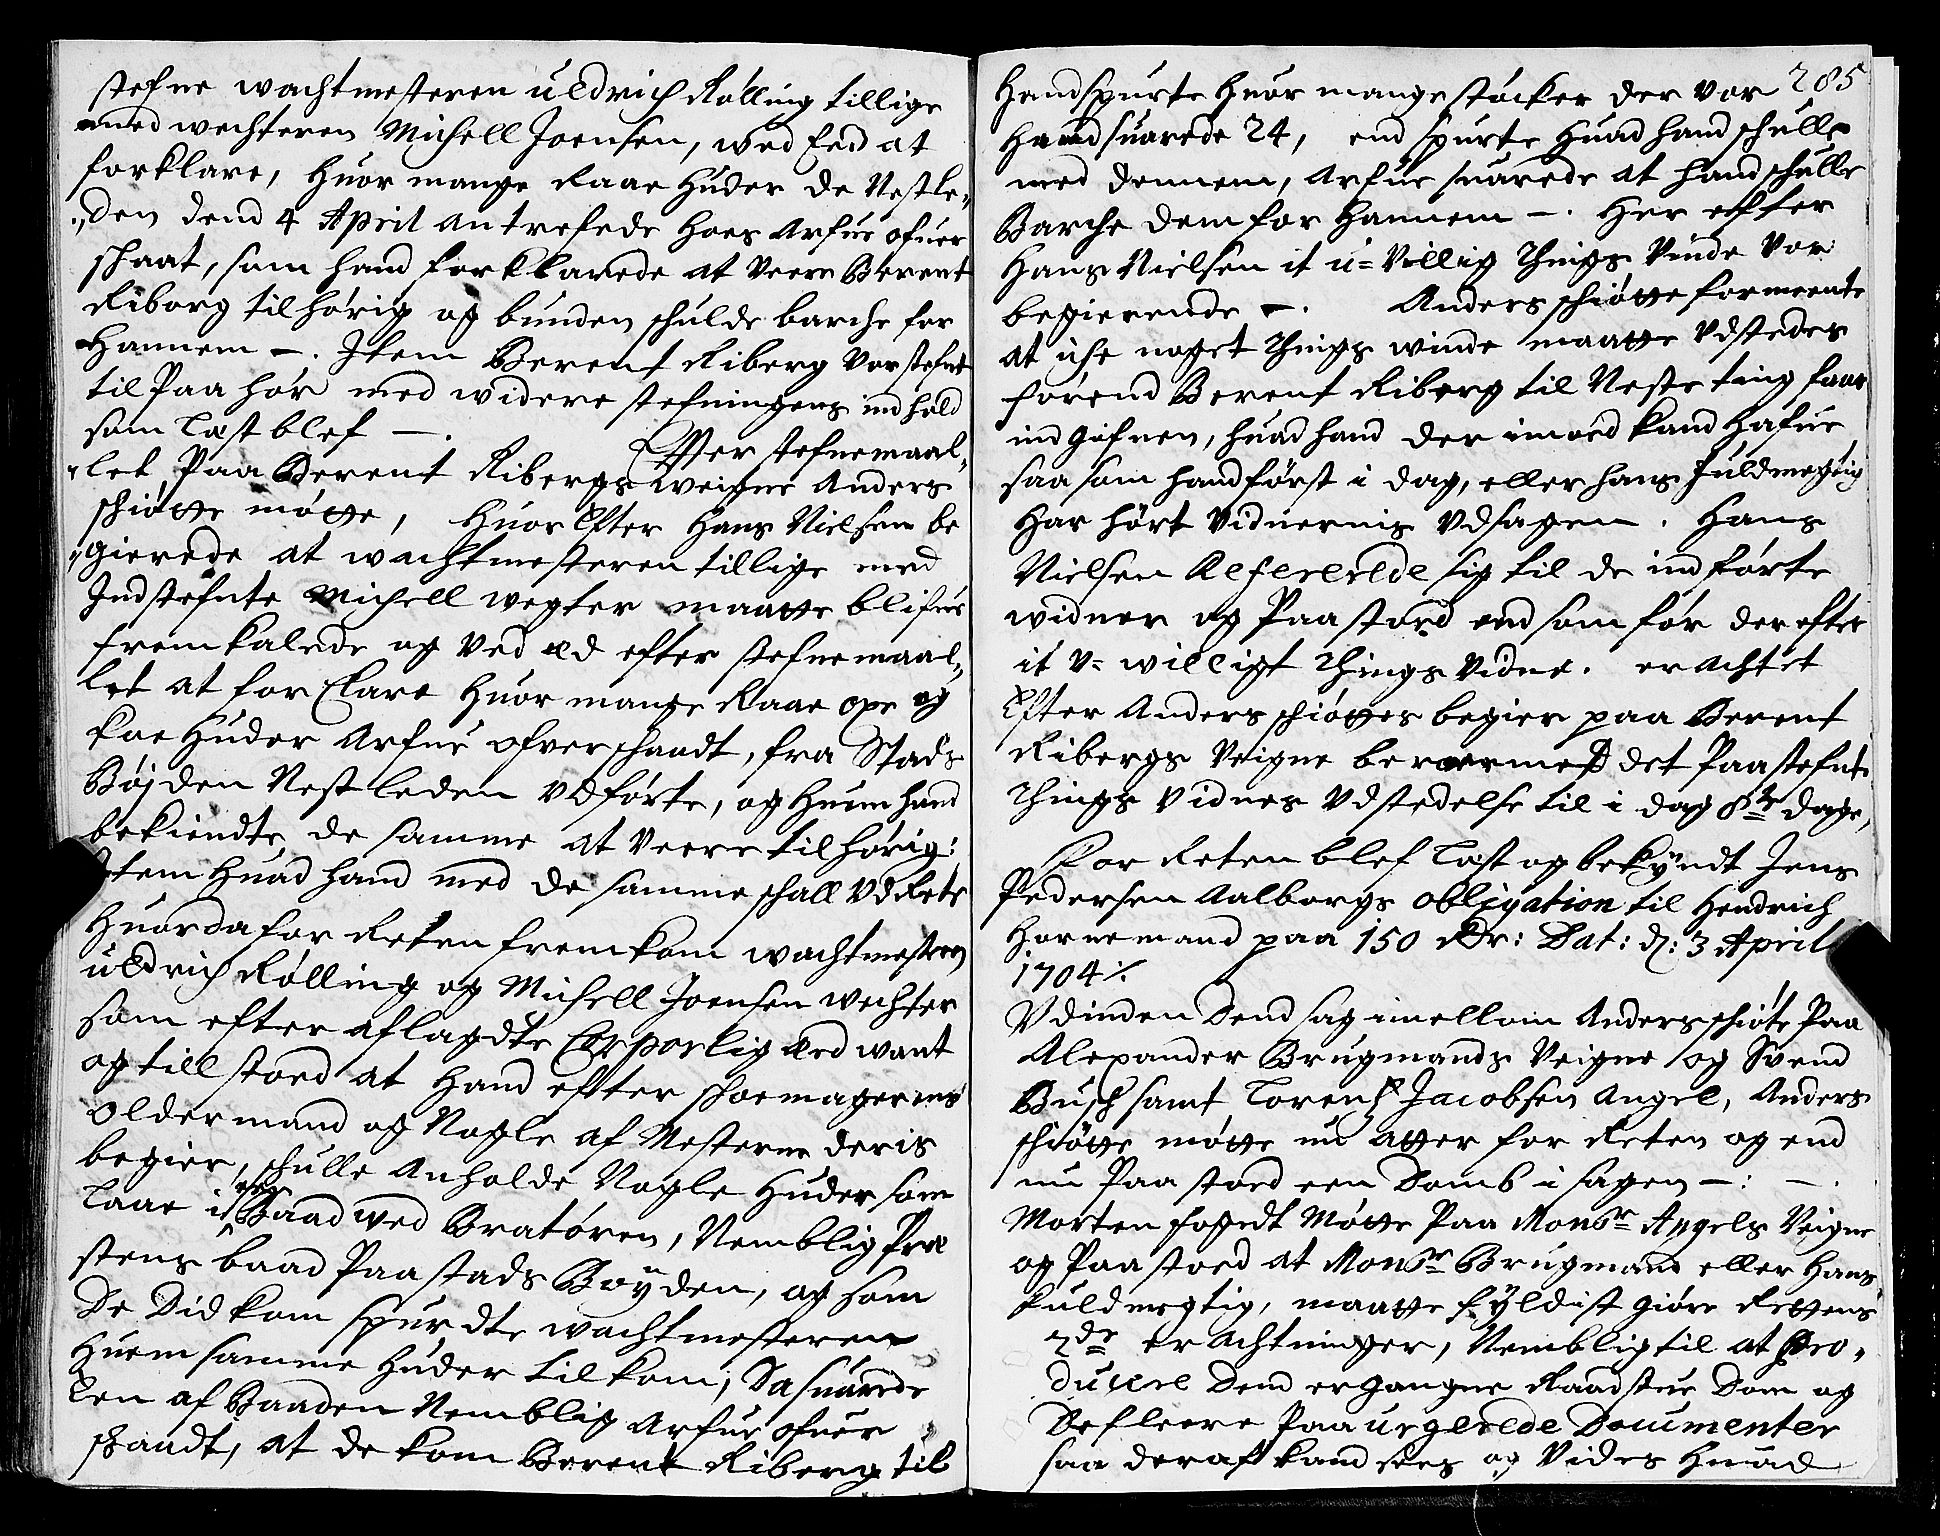 stefne wachtmesteren uldrich Rølling tillige
med wechteren Michell Joensen, wed Eed at
forklare, Huor mange Raae Huder de Nestle„
„den dend 4 April antrefede Hoes Arfue ofuer
schaat, som hand forklarede at Veere Berent
Riborg tilhørig og bunden schulde barche for
Hannem –. Item Berent Riberg Var stefnt
til Paahør med widere stefningens indhold
som læst blef –. Efter stefnemaal„
„let, Paa Berent Ribergs weigne Anders
schiøtte møtte, Huorefter Hans Nielsen be
„gierede at wachtmesteren tillige med
Indstefnte Michell wegter maatte blifue
fremkalede og Ved æd efter stefnemaal„
let at forClare Huor mange Raae oxe og
koe Huder Arfue ofverschaadt, fra Stads
Bøjden Nestleden Vdførte, og Huem hand
bekiendte de samme at Veere tilhørig:
Item Huad hand med de samme schall VdRete
Huorda for Reten fremkom wachtmestren
uldrich Rølling og Michell Joensen wechter
som efter aflagdte Corporlig Eed want
og tillstoed at Hand efter schoemagernis
oldermand og Nogle af Mesterne deris
begier, schulle Anholde Nogle Huder som
laae i en Baad wed Bratøren, Nemblig Præ
stens baad Paa stads Bøÿden, og som
De Did kom spurdte wachtmesteren
Huem samme Huder tilkom, Da suarede
Een af Baaden Nemblig Arfue ofuer
schaadt, at de kom Berent Riberg til
285
Hand spurte Huor mange støcker der Var
Hand suarede 24, end spurte Huad hand schulle
med dennem, Arfue suarede at hand schulle
Barche dem for Hannem –. Her efter
Hans Nielsen it u=Villig Things Vinde Var
begierende –. Anders schiøtte formeente
at iche noget Things winde maatte Vdstedes
førend Berent Riberg til Neste ting faar
indgifven, huad hand der imoed kand Hafue
saa som hand først i dag, eller hans fuldmegtig
Har hørt Vidnernis Vdsagen. Hans
Nielsen Refererede sig til de indførte
widner og Paastoed end som før der efter
it V= willigt Things Vidne. er Achtet
Efter Anders schiøttes begier paa Berent
Ribergs Veigne beræmes det Paastefnte
Things Vidnes Vdstedelse til i dag 8te dage,
For Reten blef læst og bekÿndt Jens
Pedersen Aalborgs obligation til Hendrich
Hornemand paa 150 Rdr: Dat: d: 3 April
1704 ⁒
Vdinden Dend sag imellom Anders schiøte Paa
Alexander Brugmands Veigne og Svend
Busch samt Lorentz Jacobsen Angel, Anders
schiøtte møtte nu atter for Reten og end
nu Paastoed een Domb i sagen –: –.
Morten fogedt Møtte Paa Monsr Angels Veigne
og Paastoed at Monsr Brugmand eller Hans
fuldmegtig, maatte fÿldist giøre Rettens
2de er Achtninger, Nemblig til at pro„
ducere Dend ergangne Raadstue Dom og
De fleere Paaurgerede Documenter
saa deraf kand sees og Vides Huad